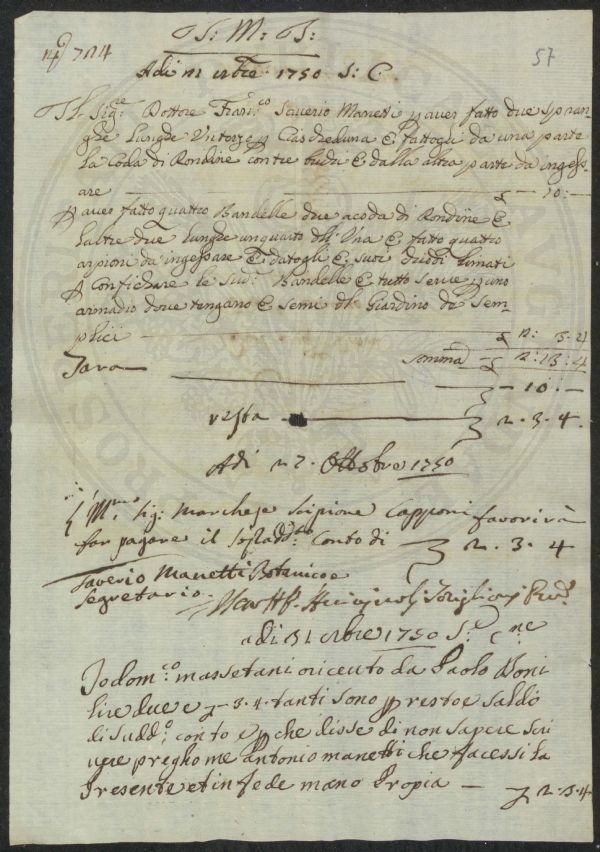 57
S: M: S:
Adi 21 8bre 1750 S: C.
Il Sig.re Dottore Fran.co Saverio Maneti p aver fatto due spran=
ghe Lunghe p Cascheduna E fattogli da una parte
La Coda di Rondine con tre buchi E dalla altra parte da ingess=
are — — 10: —
p aver fatto quattro Bandelle due a coda di Rondine E
L'altre due Lunghe un quarto dll' Una E fatto quattro
arpioni da ingessare E datogli E suoi chiodi Limati
p Confichare le Sud.e Bandelle E tutto Serve p uno
armadio dove tengano E Semi dl Giardino de Sem=
plici — 2: 3. 4
Somma — 2: 13: 4
Tara — — 10: —
resta — 2. 3. 4.
Adi 27. Ottobre 1750
Sig: Marchese Scipione Capponi favorirà
far pagare il Conto di 2. 3. 4
Saverio Manetti Botanico e
Segretario.
adi 31 8bre 1750
Io dom.co massetani o ricevto da Paolo Boni
lire due e — 3. 4. tanti sono p resto e saldo
di sudd.o conto e p che disse di non sapere scri
vere pregho me Antonio manetti che facessi la
Presente et in fede mano Propia — 2. 3. 4